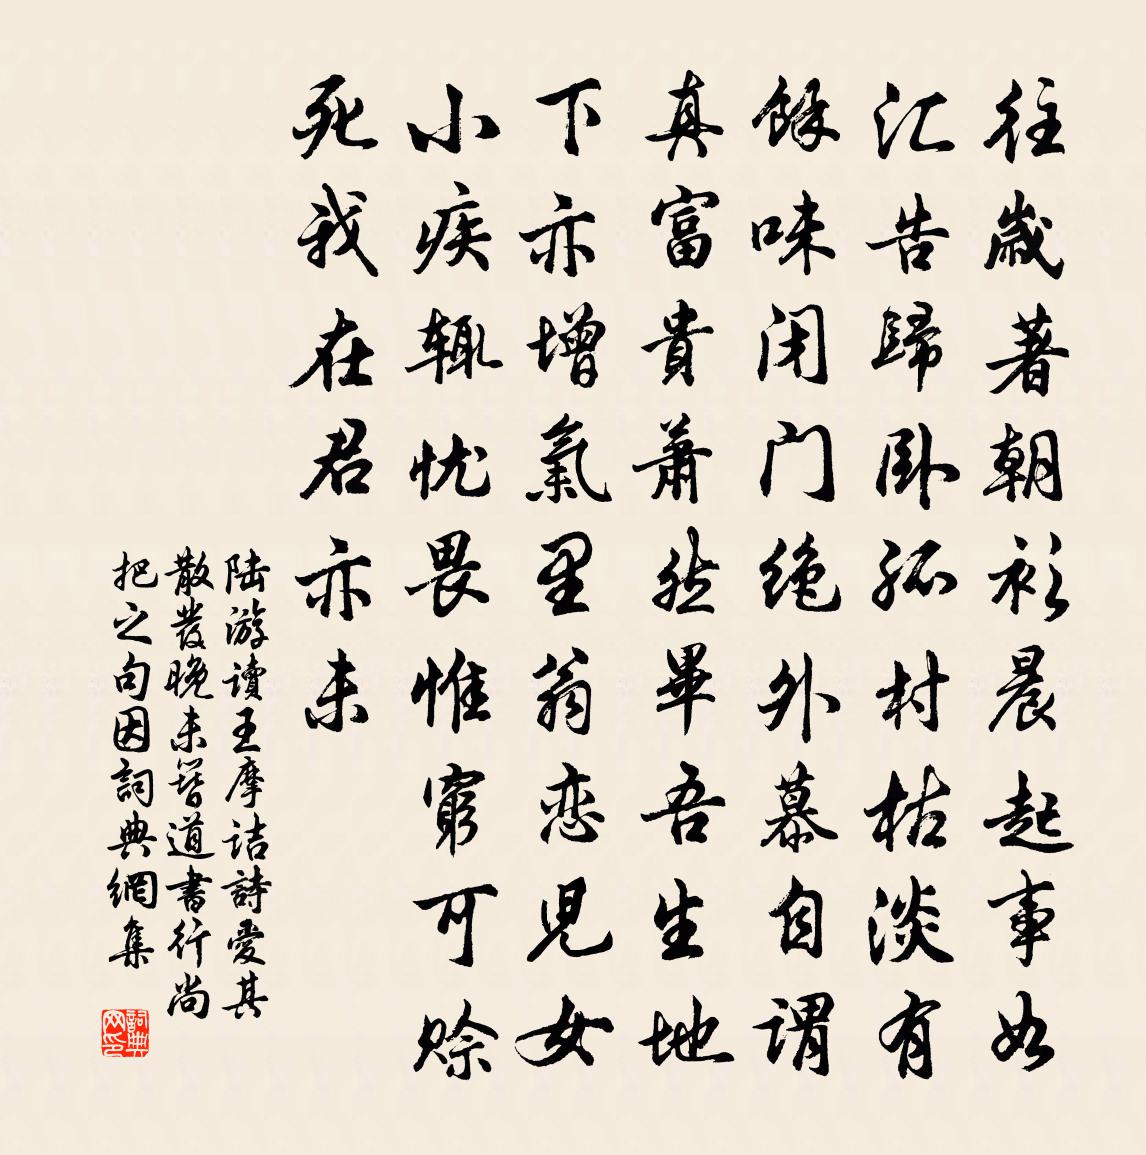 往歲著朝衫晨起事如
汇告歸卧孤村枯淡有
餘味闭门绝外慕自谓
真富貴蕭然畢吾生地
下亦增氣里翁恋児女
小疾辄忧畏惟窮可赊
死我在君亦未
陆游讀王摩诘詩愛其
散發晚未簪道書行尚
把之句因詞典網集
詞典网印